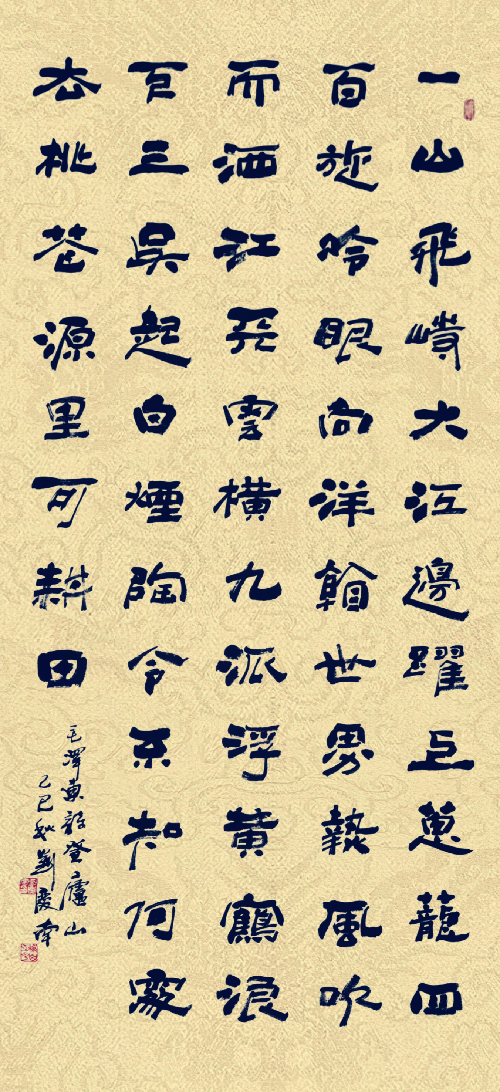 一山飛峙大江邊躍上葱蘢四
百旋冷眼向洋看世界熱風吹
而洒江天雲橫九派浮黄鶴浪
下三吳起白煙陶令不知何處
去桃花源里可耕田
毛澤東詩登廬山
己巳秋劉慶南